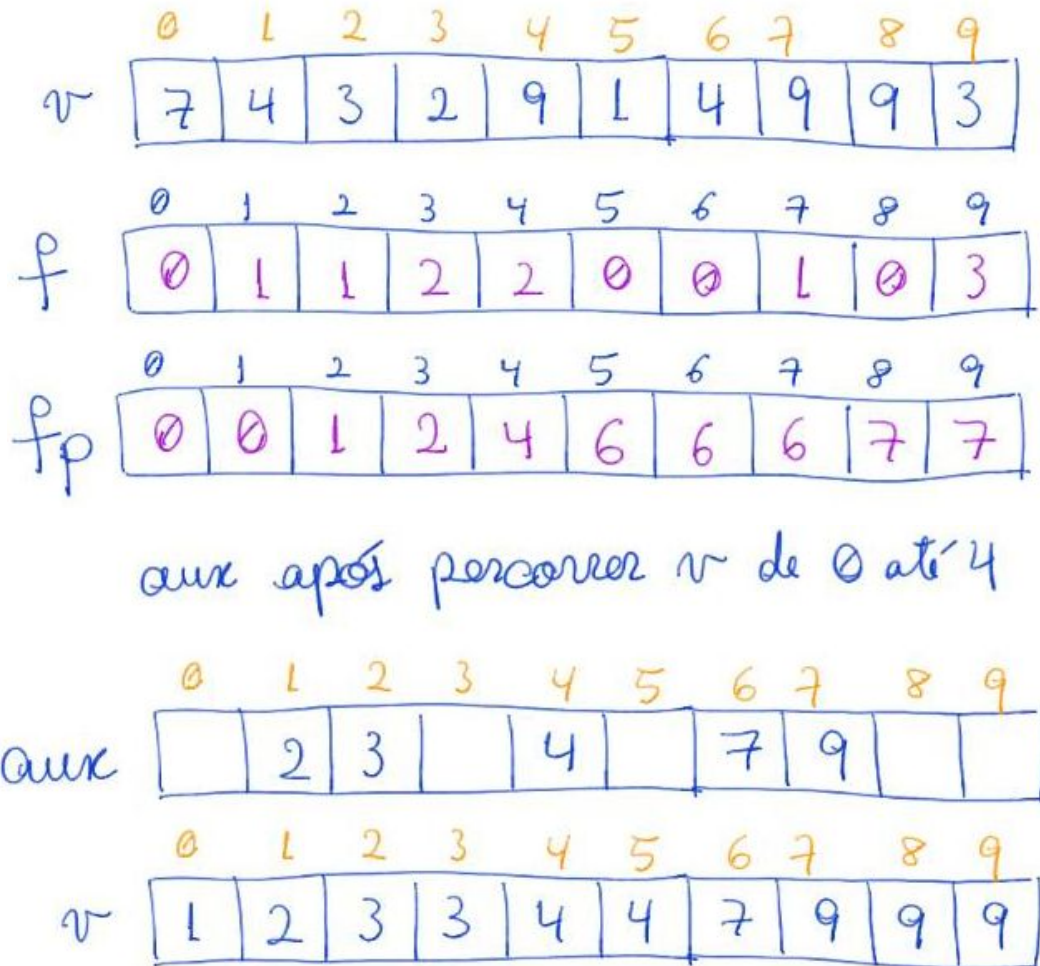 0 1 2 3 4 5 6 7 8 9
v 7 4 3 2 9 1 4 9 9 3
0 1 2 3 4 5 6 7 8 9
f 0 1 1 2 2 0 0 1 0 3
0 1 2 3 4 5 6 7 8 9
fp 0 0 1 2 4 6 6 6 7 7
aux após percorrer v de 0 até 4
0 1 2 3 4 5 6 7 8 9
aux 2 3 4 7 9
0 1 2 3 4 5 6 7 8 9
v 1 2 3 3 4 4 7 9 9 9